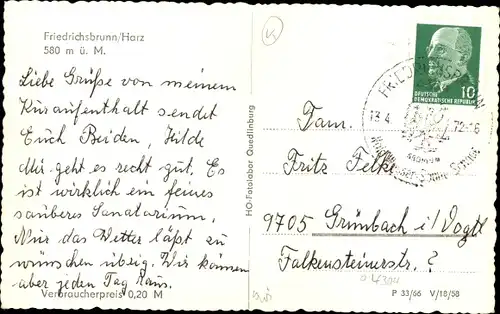 Friedrichsbrunn/Harz
580 m ü. M.
Liebe Grüße von meinem
Kuraufenthalt sendet
Euch Beiden, Hilde
Mir geht es recht gut. Es
ist wirklich ein feines
sauberes Sanatorium,
Nur das Wetter läßt zu
wünschen übrig. Wir können
aber jeden Tag Raus.
Verbraucherpreis 0,20 M
HO-Fotolabor Quedlinburg
10
DEUTSCHE
DEMOKRATISCHE REPUBLIK
13.4.
72-16
Fam.
Fritz Felke
9705 Grünbach i/Vogtl
Falkensteinerstr. ?
P 33/66 V/18/58